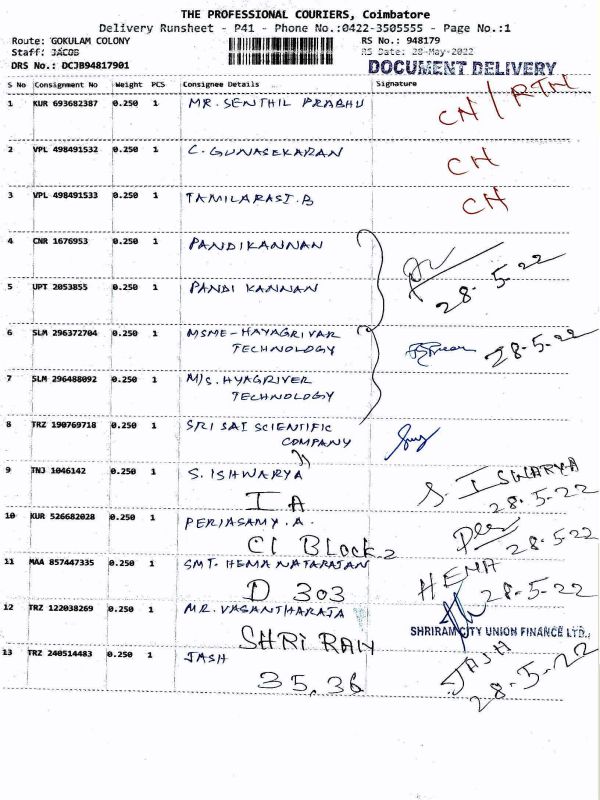 THE PROFESSIONAL COURIERS, Coimbatore
Delivery Runsheet - P41 - Phone No.:0422-3505555 - Page No.:1
Route: GOKULAM COLONY RS No.: 948179
Staff: JACOB RS Date: 28-May-2022
DRS No.: DCJB94817901 DOCUMENT DELIVERY
S No Consignment No Weight PCS Consignee Details Signature
1 KUR 693682387 0.250 1 MR. SENTHIL PRABHU CH / RTN
2 VPL 498491532 0.250 1 C. GUNASEKARAN CH
3 VPL 498491533 0.250 1 TAMILARASI.B CH
4 CNR 1676953 0.250 1 PANDIKANNAN
5 UPT 2053855 0.250 1 PANDI KANNAN 28-5-22
6 SLM 296372704 0.250 1 MSME-HAYAGRIVAR 28-5-22
TECHNOLOGY
7 SLM 296488092 0.250 1 M/S. HYAGRIVER
TECHNOLOGY
8 TRZ 190769718 0.250 1 SRI SAI SCIENTIFIC
COMPANY
9 TNJ 1046142 0.250 1 S. ISHWARYA S. ISWARYA
I A 28-5-22
10 KUR 526682028 0.250 1 PERIASAMY.A. 28-5-22
C1 Block-2
11 MAA 857447335 0.250 1 SMT. HEMA NATARAJAN HEMA
D 303 28-5-22
12 TRZ 122038269 0.250 1 MR. VASANTHARAJA
SHRIRAM CITY UNION FINANCE LTD.,
SHRI RAM
13 TRZ 240514483 0.250 1 JASH JASH
35,36 28-5-22